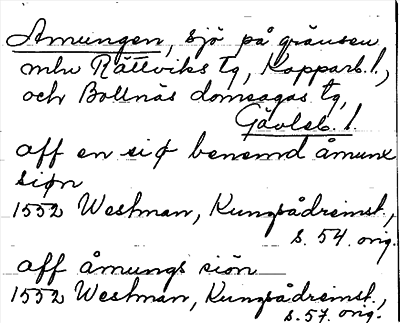 Amungen, sjö på gränsen
mln Rättviks tg, Kopparb. l.,
och Bollnäs domsagas tg,
Gävleb. l.
aff en siø benemd åmunx
siøn
1552 Westman, Kungsådreinst.,
s. 54. orig.
aff åmungs siön
1552 Westman, Kungsådreinst.,
s. 57. orig.